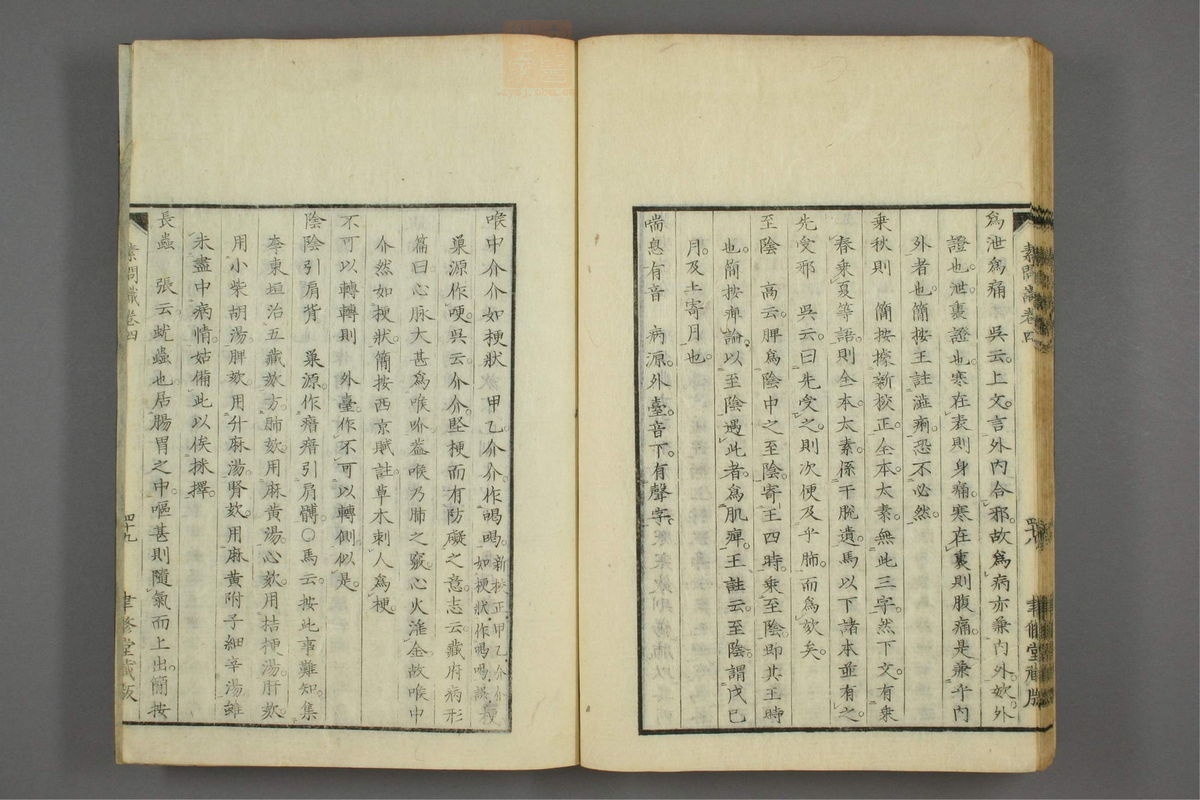 為泄為痛　吳云。上文言外內合邪。故為病亦兼內外。妎外
證也。泄裏證也。寒在表則身痛。寒在裏則腹痛。是兼乎內
外者也。簡按王註澁痢。恐不必然。
乘秋則　簡按據新校正。全本太素。無此三字。然下文有乘
春乘夏等語。則全本太素。係于脫遺。馬以下諸本並有之。
先受邪　吳云。曰先受之。則次便及乎肺。而為欬矣。
至陰　高云。脾為陰中之至陰。寄王四時。乘至陰。即其王時
也。簡按痺論。以至陰遇此者。為肌痺。王註云。至陰。謂戊己
月。及土寄月也。
喘息有音　病源。外臺。音下。有聲字。
素問識卷四
四十八
聿修堂藏版
喉中介介如梗狀　甲乙介介。作喝喝。新校正。甲乙介介
如梗狀。作喝喝。誤。梗
巢源作哽。吳云。介介。堅梗而有防礙之意。志云。藏府病形
篇曰。心脈大甚。為喉吤。蓋喉乃肺之竅。心火淫金。故喉中
介然如梗狀。簡按西京賦註。草木刺人為梗。
不可以轉轉則　外臺。作不可以轉側。似是。
陰陰引肩背　巢源。作瘖瘖引肩髆。○馬云。按此事難知。集
李東垣治五藏欬方。肺欬。用麻黃湯。心欬。用桔梗湯。肝欬。
用小柴胡湯。脾欬。用升麻湯。腎欬。用麻黃附子細辛湯。雖
未盡中病情。姑備此以俟採擇。
長蟲　張云。蚘蟲也。居腸胃之中。嘔甚則隨氣而上出。簡按
素問識卷四
四十九
聿修堂藏版